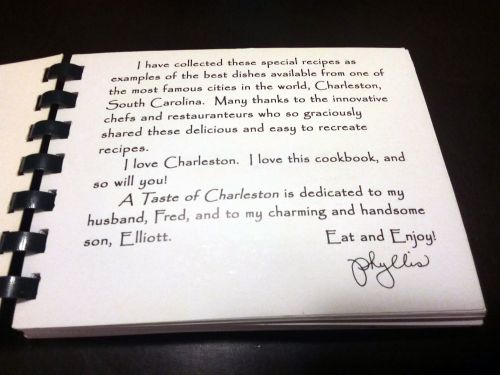 I have collected these special recipes as
examples of the best dishes available from one of
the most famous cities in the world, Charleston,
South Carolina. Many thanks to the innovative
chefs and restauranteurs who so graciously
shared these delicious and easy to recreate
recipes.
I love Charleston. I love this cookbook, and
so will you!
A Taste of Charleston is dedicated to my
husband, Fred, and to my charming and handsome
son, Elliott. Eat and Enjoy!
Phyllis